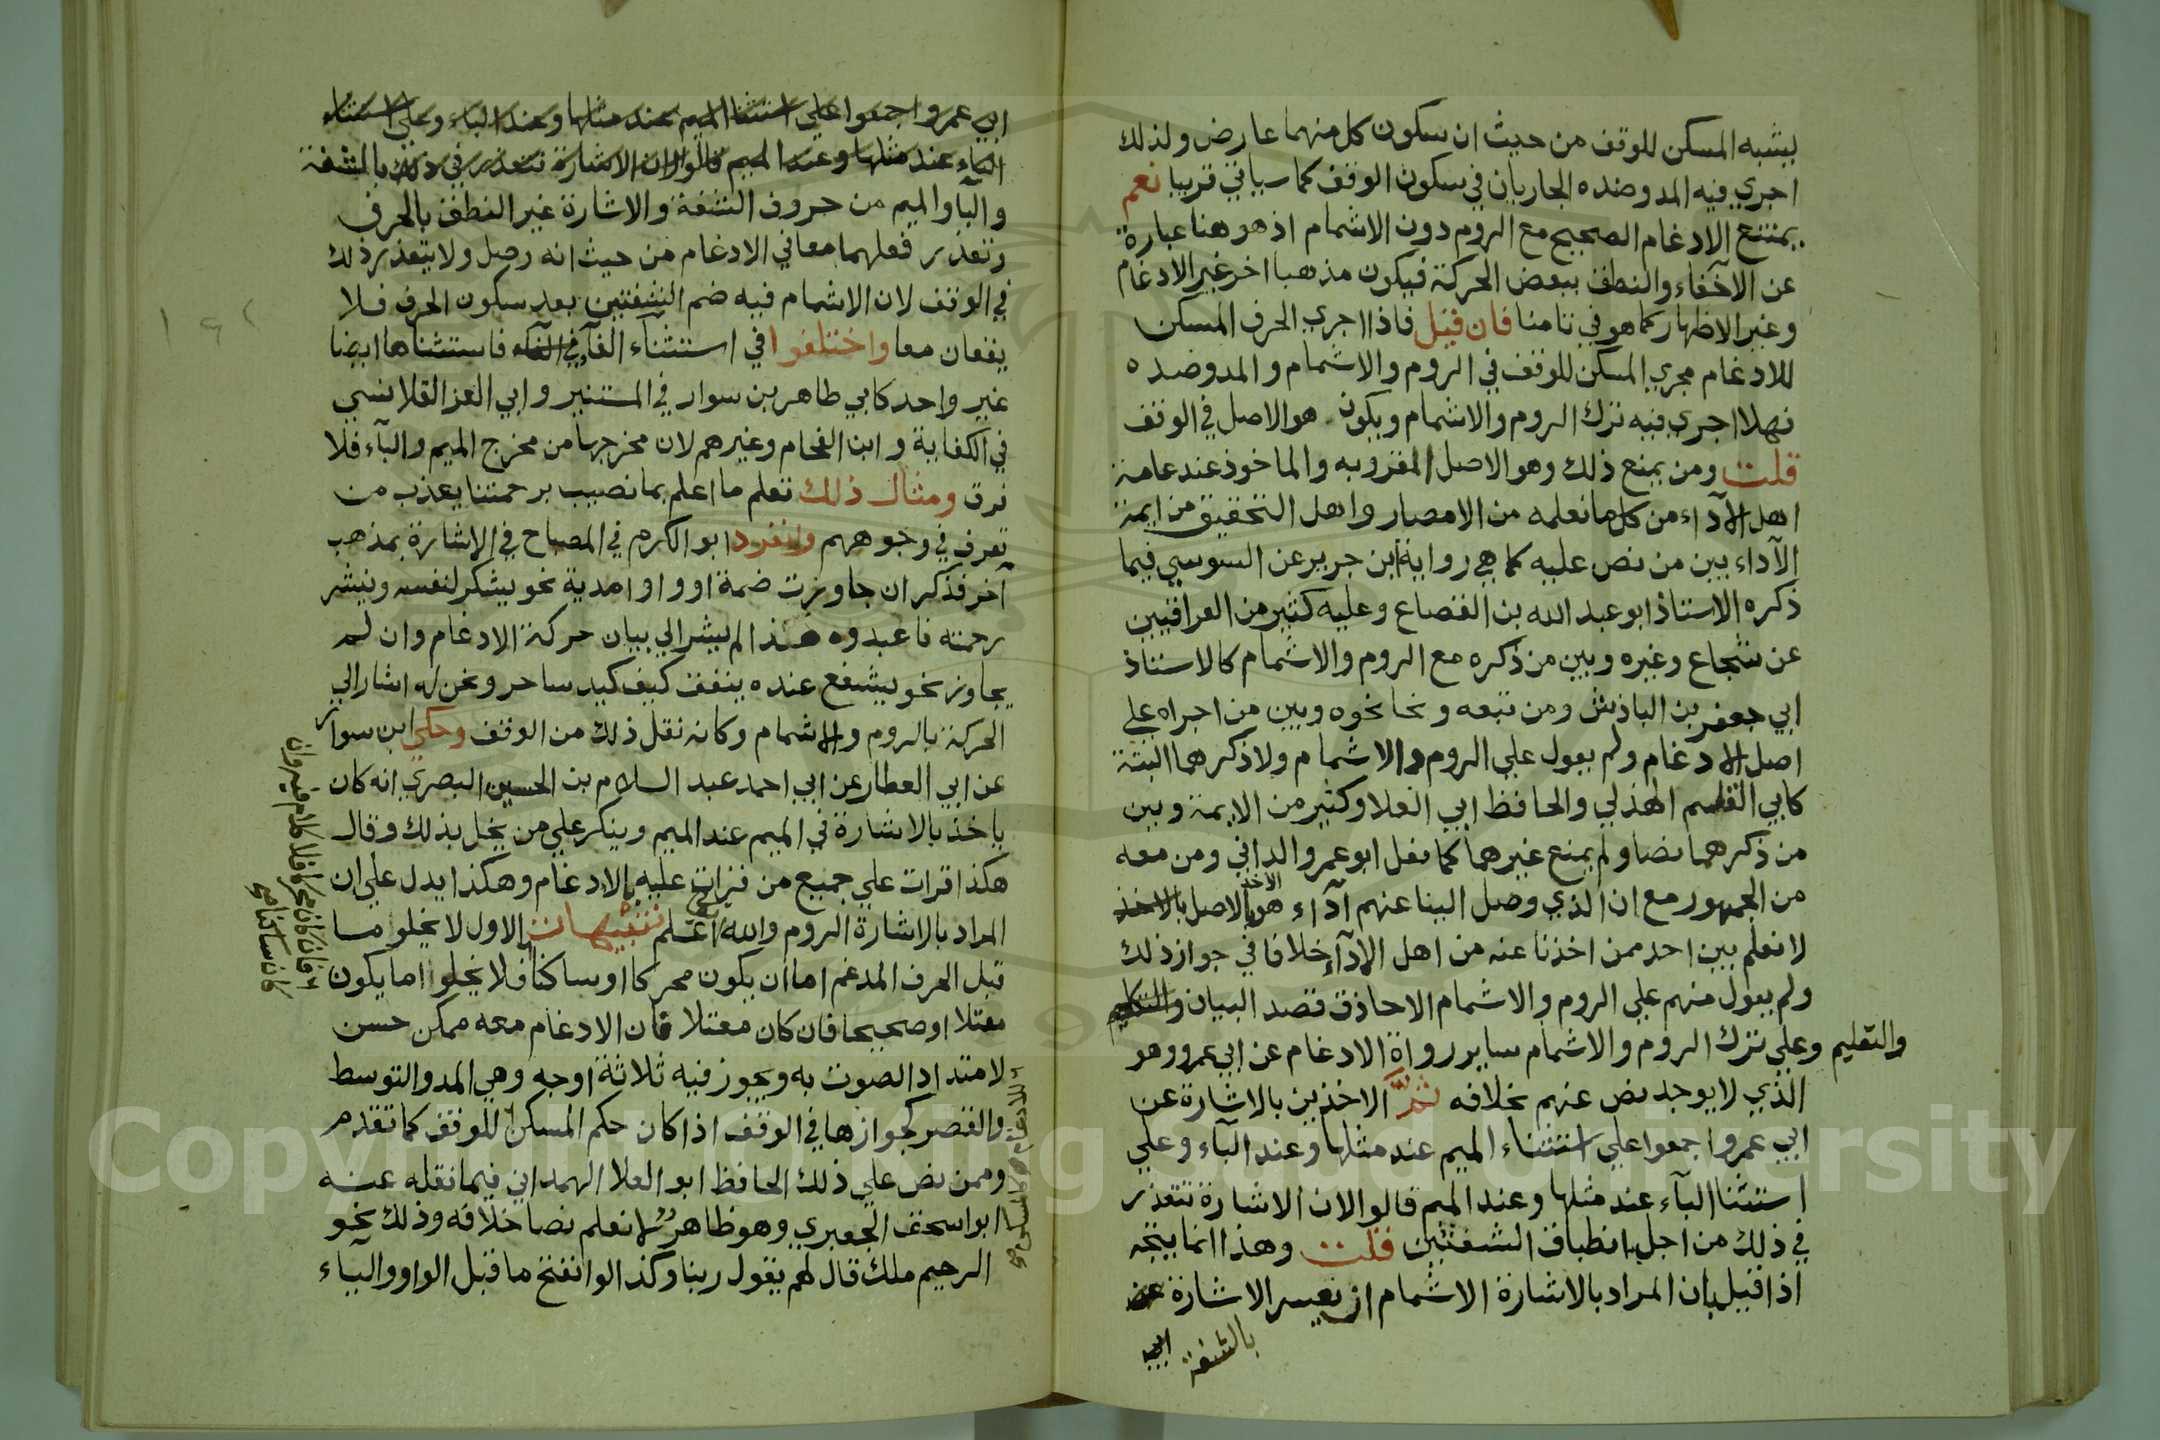 يشبه المسكن للوقف من حيث ان سكون كل منهما عارض ولذلك
اجري فيه المد وضده الجاريان في سكون الوقف كما سياتي قريبا نعم
يمتنع الادغام الصحيح مع الروم دون الاشمام اذ هو هنا عبارة
عن الاخفاء والنطق ببعض الحركة فيكون مذهبا اخر غير الادغام
وغير الاظهار كما هو في تامنا فان قيل فاذا اجري الحرف المسكن
للادغام مجري المسكن للوقف في الروم والاشمام والمد وضده
فهلا اجري فيه ترك الروم والاشمام ويكون هو الاصل في الوقف
قلت ومن يمنع ذلك وهو الاصل المقروبه والماخوذ عند عامة
اهل الآداء من كل ما نعلمه من الامصار واهل التحقيق من ايمة
الآداء بين من نص عليه كما هي رواية ابن جرير عن السوسي فيما
ذكره الاستاذ ابو عبد الله بن القصاع وعليه كثير من العراقيين
عن شجاع وغيره وبين من ذكره مع الروم والاشمام كالاستاذ
ابي جعفر بن الباذش ومن تبعه ونحا نحوه وبين من اجراه علي
اصل الادغام ولم يعول علي الروم والاشمام ولا ذكرهما البتة
كابي القاسم الهذلي والحافظ ابي العلا وكثير من الايمة وبين
من ذكرهما نصا ولم يمنع غيرهما كما فعل ابو عمرو الداني ومن معه
من الجمهور مع ان الذي وصل الينا عنهم آداء هو الاخذ بالاصل بالاخذ
لا نعلم بين احد ممن اخذنا عنه من اهل الادآء خلافا في جواز ذلك
ولم يعول منهم علي الروم والاشمام الا حاذق قصد البيان
والتعليم وعلي ترك الروم والاشمام ساير رواة الادغام عن ابي عمرو وهو
الذي لا يوجد نص عنهم بخلافه ثمّ الاخذين بالاشارة عن
ابي عمرو اجمعوا علي استثناء الميم عند مثلها وعند الباء وعلي
استثنا الباء عند مثلها وعند الميم قالوا لان الاشارة تتعذر
في ذلك من اجل انطباق الشفتين قلت وهذا انما يتجه
اذا قيل بان المراد بالاشارة الاشمام اذ تعسر الاشارة
بالشفة ابي
ابي عمرو اجمعوا علي استثنا الميم عند مثلها وعند الباء وعلي استثناء
الباء عند مثلها وعند الميم قالوا لان الاشارة تتعذر في ذلك بالشفة
والبآ والميم من حروف الشفة والاشارة غير النطق بالحرف
وتعذر فعلهما معا في الادغام من حيث انه وصل ولا يتعذر ذلك
في الوقف لان الاشمام فيه ضم الشفتين بعد سكون الحرف فلا
يقعان معا واختلفوا في استثناء الفآ في الفآء فاستثناها ايضا
غير واحد كابي طاهر بن سوار في المستنير وابي العز القلانسي
في الكفاية وابن الفحام وغيرهم لان مخرجها من مخرج الميم والبآء فلا
فرق ومثال ذلك تعلم ما اعلم بما نصيب برحمتنا يعذب من
تعرف في وجوههم وانفرد ابو الكرم في المصباح في الاشارة بمذهب
آخر فذكر ان جاورت ضمة او واوا مدية نحو يشكر لنفسه وينشر
رحمته فاعبدوه هذا لم يشر الي بيان حركة الادغام وان لم
يجاوز نحو يشفع عنده ينفق كيف كيد ساحر ونحن له اشار الي
الحركة بالروم والاشمام وكانه نقل ذلك من الوقف وحكي ابن سوار
عن ابي العطار عن ابي احمد عبد السلام بن الحسين البصري انه كان
ياخذ بالاشارة في الميم عند الميم وينكر علي من يخل بذلك وقال
هكذا قرات علي جميع من قرات عليه بالادغام وهكذا يدل علي ان
المراد بالاشارة الروم والله اعلم تنبيهات الاول لا يخلوا ما
قبل الحرف المدغم اما ان يكون محركا او ساكنا فلا يخلوا اما يكون
معتلا او صحيحا فان كان معتلا فان الادغام معه ممكن حسن
لامتداد الصوت به ويجوز فيه ثلاثة اوجه وهي المد والتوسط
والقصر كجوازها في الوقف اذا كان حكم المسكن للوقف كما تقدم
وممن نص علي ذلك الحافظ ابو العلا الهمداني فيما نقله عنه
ابو اسحق الجعبري وهو ظاهر لا نعلم نصا خلافه وذلك نحو
الرحيم ملك قال لهم يقول ربنا وكذا لو انفتح ما قبل الواو والياء
فان كان محركا فلا كلام فيه وان
كان ساكنا صح
Copyright © King Saud University